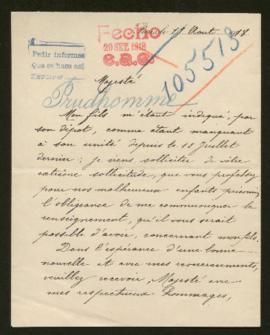 Fecho
20 SET. 1918
Août 1918
Pedir informes
105513
Majesté
Prudhomme
Mon fils m'étant indiqué, par
son dépôt, comme étant manquant
à son unité depuis le 15 Juillet
dernier; je viens solliciter de votre
extrême sollicitude, que vous professez
pour nos malheureux enfants prisonniers
l'obligeance de me communiquer le
renseignement, qu'il vous serait
possible d'avoir, concernant mon fils.
Dans l'espérance d'une bonne
nouvelle et avec mes remerciements,
veuillez recevoir, Majesté avec
mes respectueux hommages,